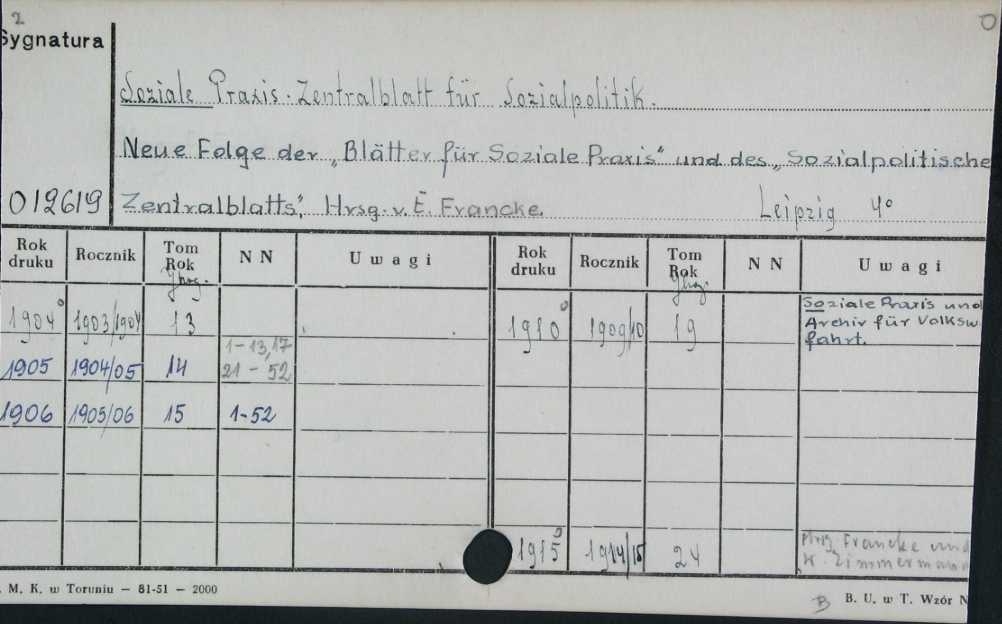 2
O
Sygnatura
Soziale Praxis. Zentralblatt für Sozialpolitik.
Neue Folge der „Blätter für Soziale Praxis" und des „Sozialpolitische
012619 Zentralblatts", Hrsg. v. E. Francke. Leipzig 4°
Rok druku Rocznik Tom Rok NN Uwagi Rok druku Rocznik Tom Rok NN Uwagi
Jhrg. Jhrg.
1904 1903/1904 13 1910 1909/10 19 Soziale Praxis und Archiv für Volksw fahrt.
1905 1904/05 14 1-13,17 21-52
1906 1905/06 15 1-52
1915 1914/15 24 Hrsg Francke und W. Zimmermann
. M. K. w Toruniu — 81-51 — 2000
B B. U. w T. Wzór N